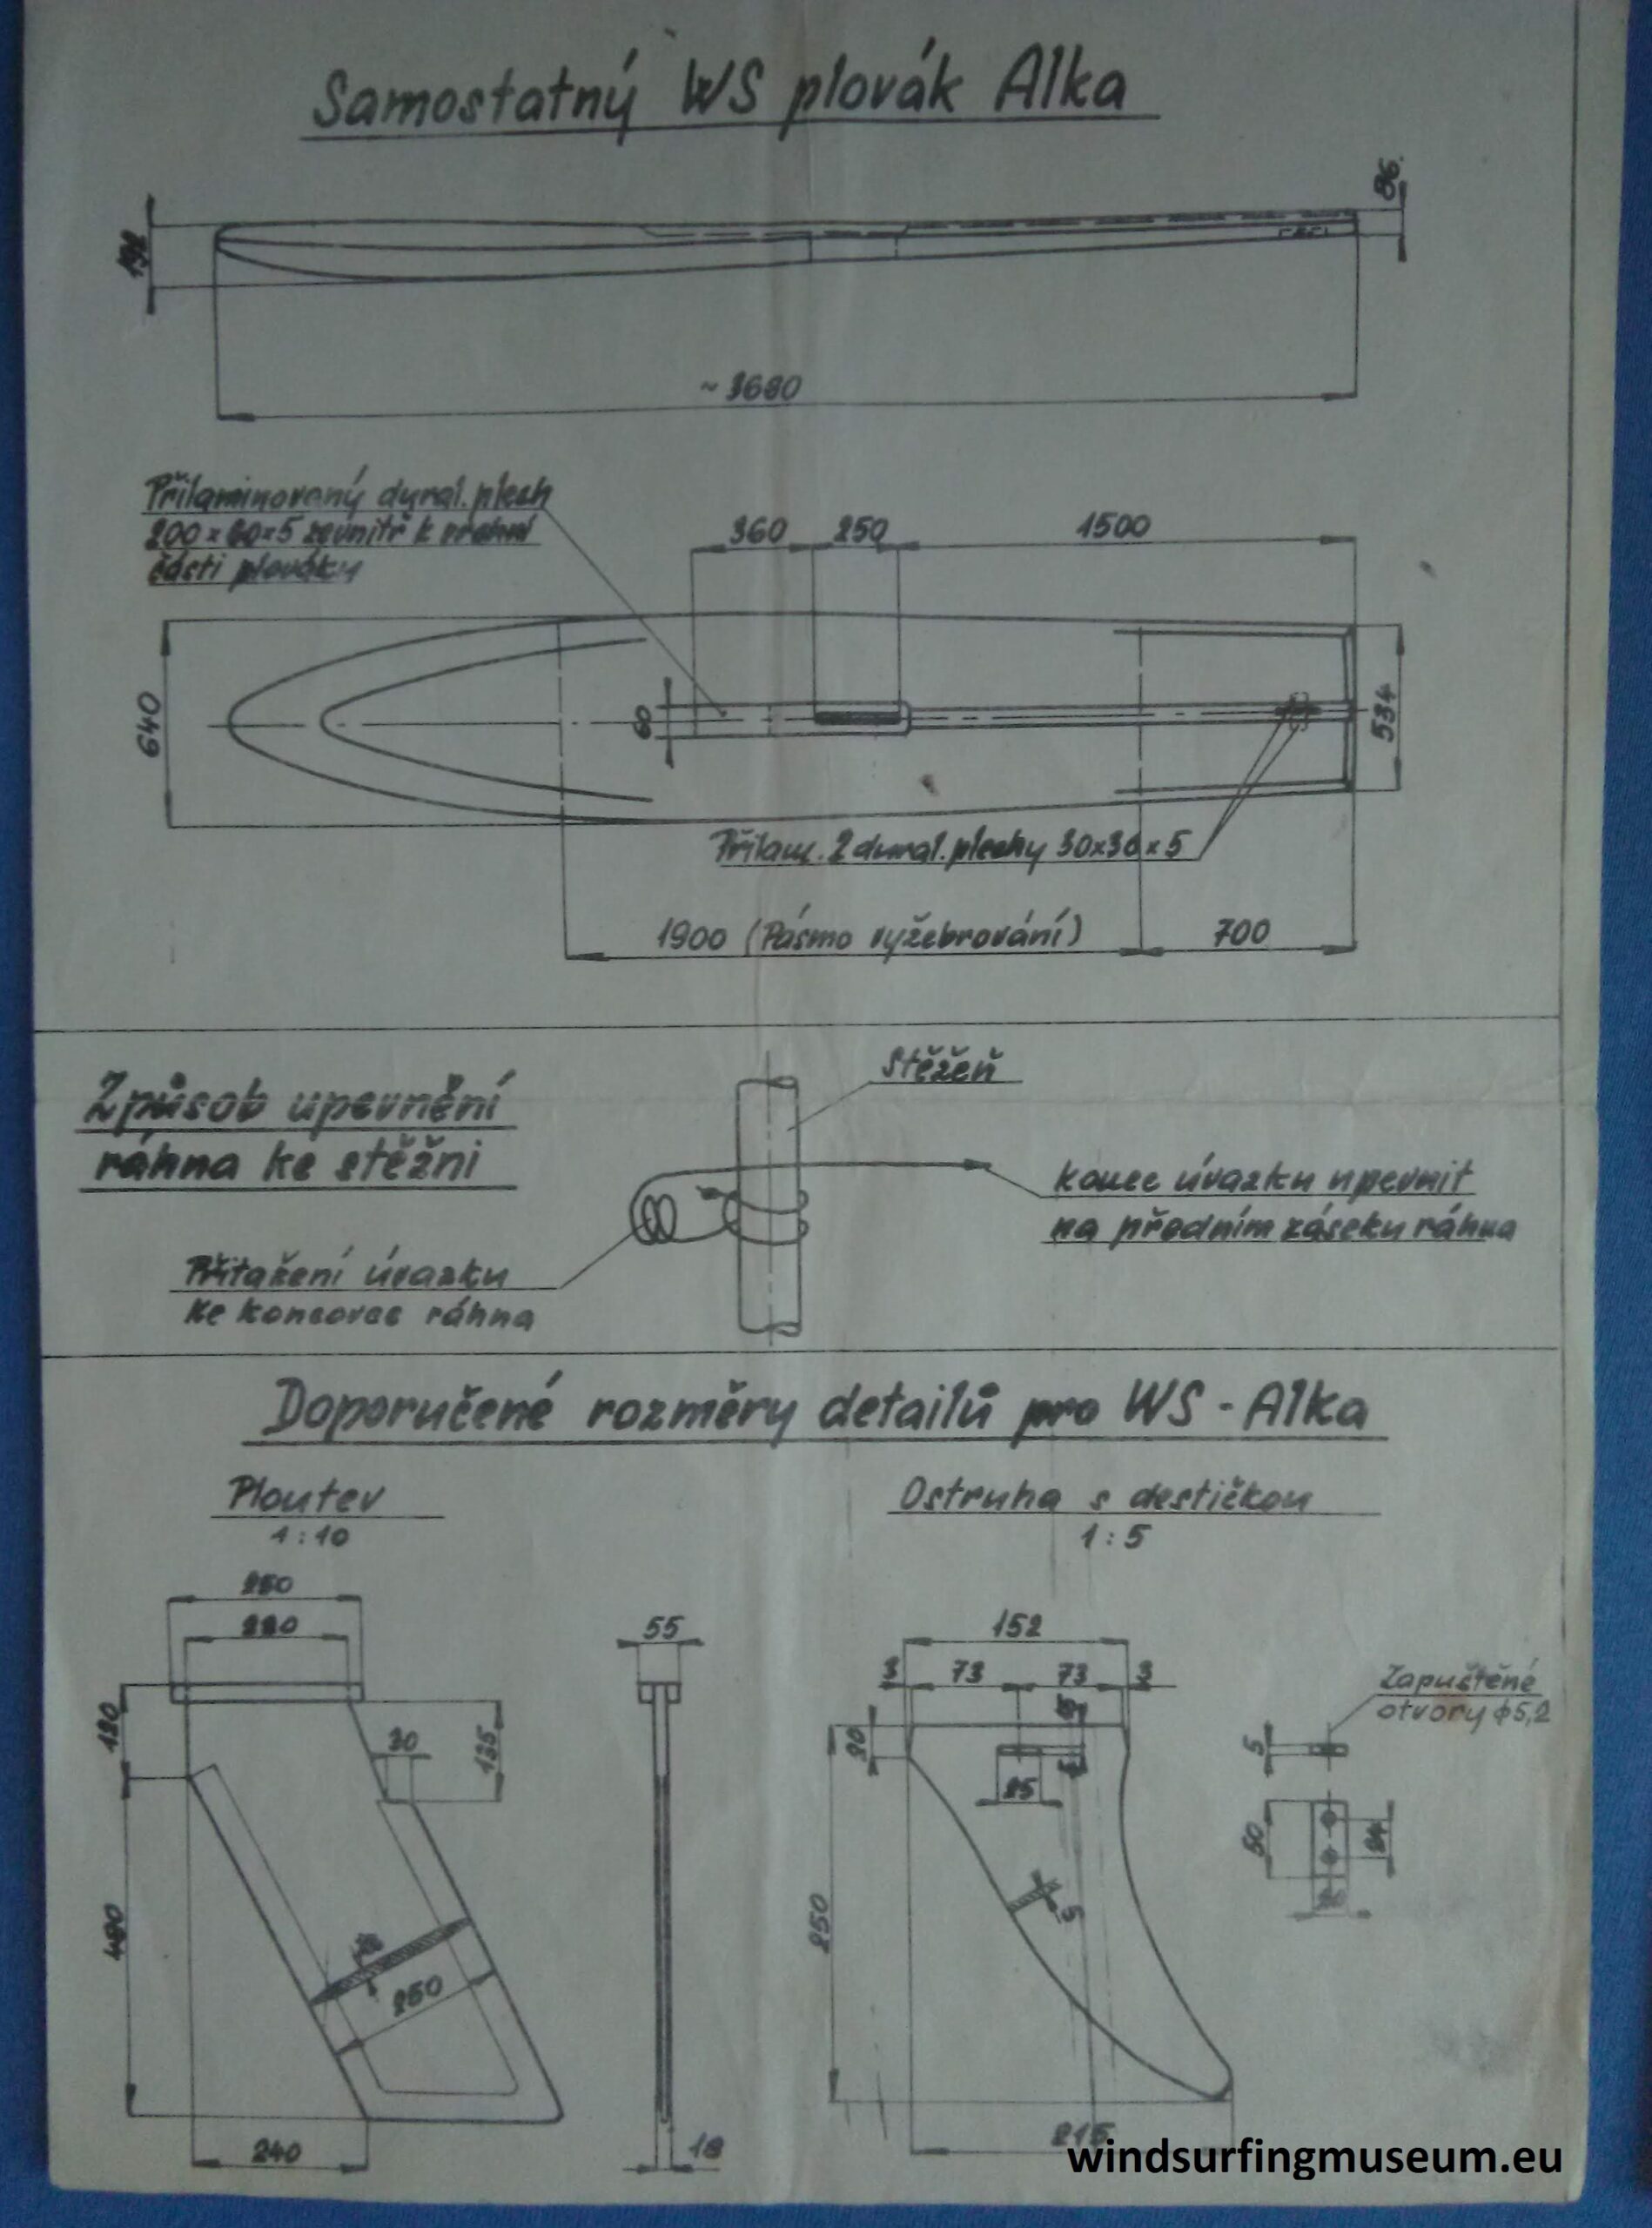 Samostatný WS plovák Alka
86
192
~ 3680
Přilaminovaný dural. plech
200 x 60 x 5 zevnitř k vrchní
části plováku
360
250
1500
640
60
534
Přilam. 2 dural. plechy 30x30x5
1900 (Pásmo vyžebrování)
700
Způsob upevnění
ráhna ke stěžni
Stěžeň
Konec úvazku upevnit
na předním záseku ráhna
Přitažení úvazku
ke koncovce ráhna
Doporučené rozměry detailů pro WS - Alka
Ploutev
1 : 10
Ostruha s destičkou
1 : 5
250
220
55
152
3
73
73
3
Zapuštěné
otvory ϕ5,2
120
30
135
20
5
25
50
24
480
250
5
250
240
18
215
windsurfingmuseum.eu